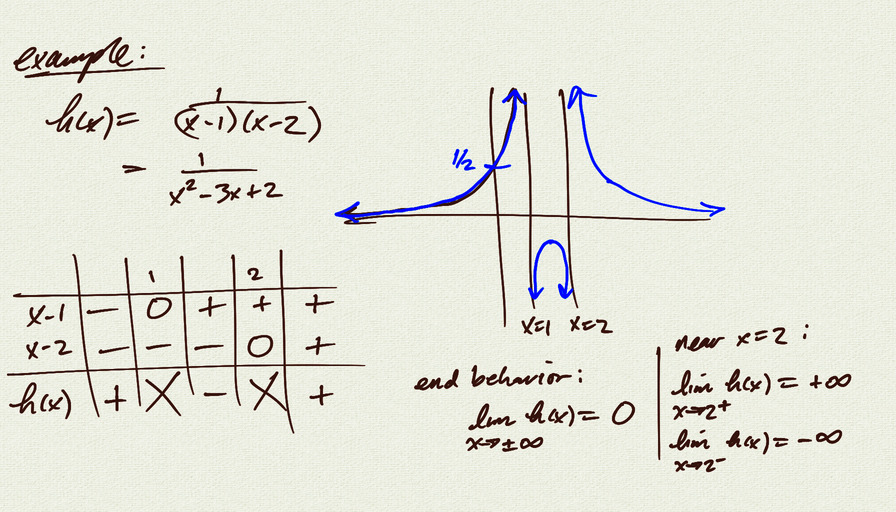 example:
h(x) = 1/((x-1)(x-2))
= 1/(x²-3x+2)
1 2
x-1 - 0 + + +
x-2 - - - 0 +
h(x) + X - X +
1/2
x=1 x=2
end behavior:
lim h(x) = 0
x→±∞
near x=2:
lim h(x) = +∞
x→2⁺
lim h(x) = -∞
x→2⁻